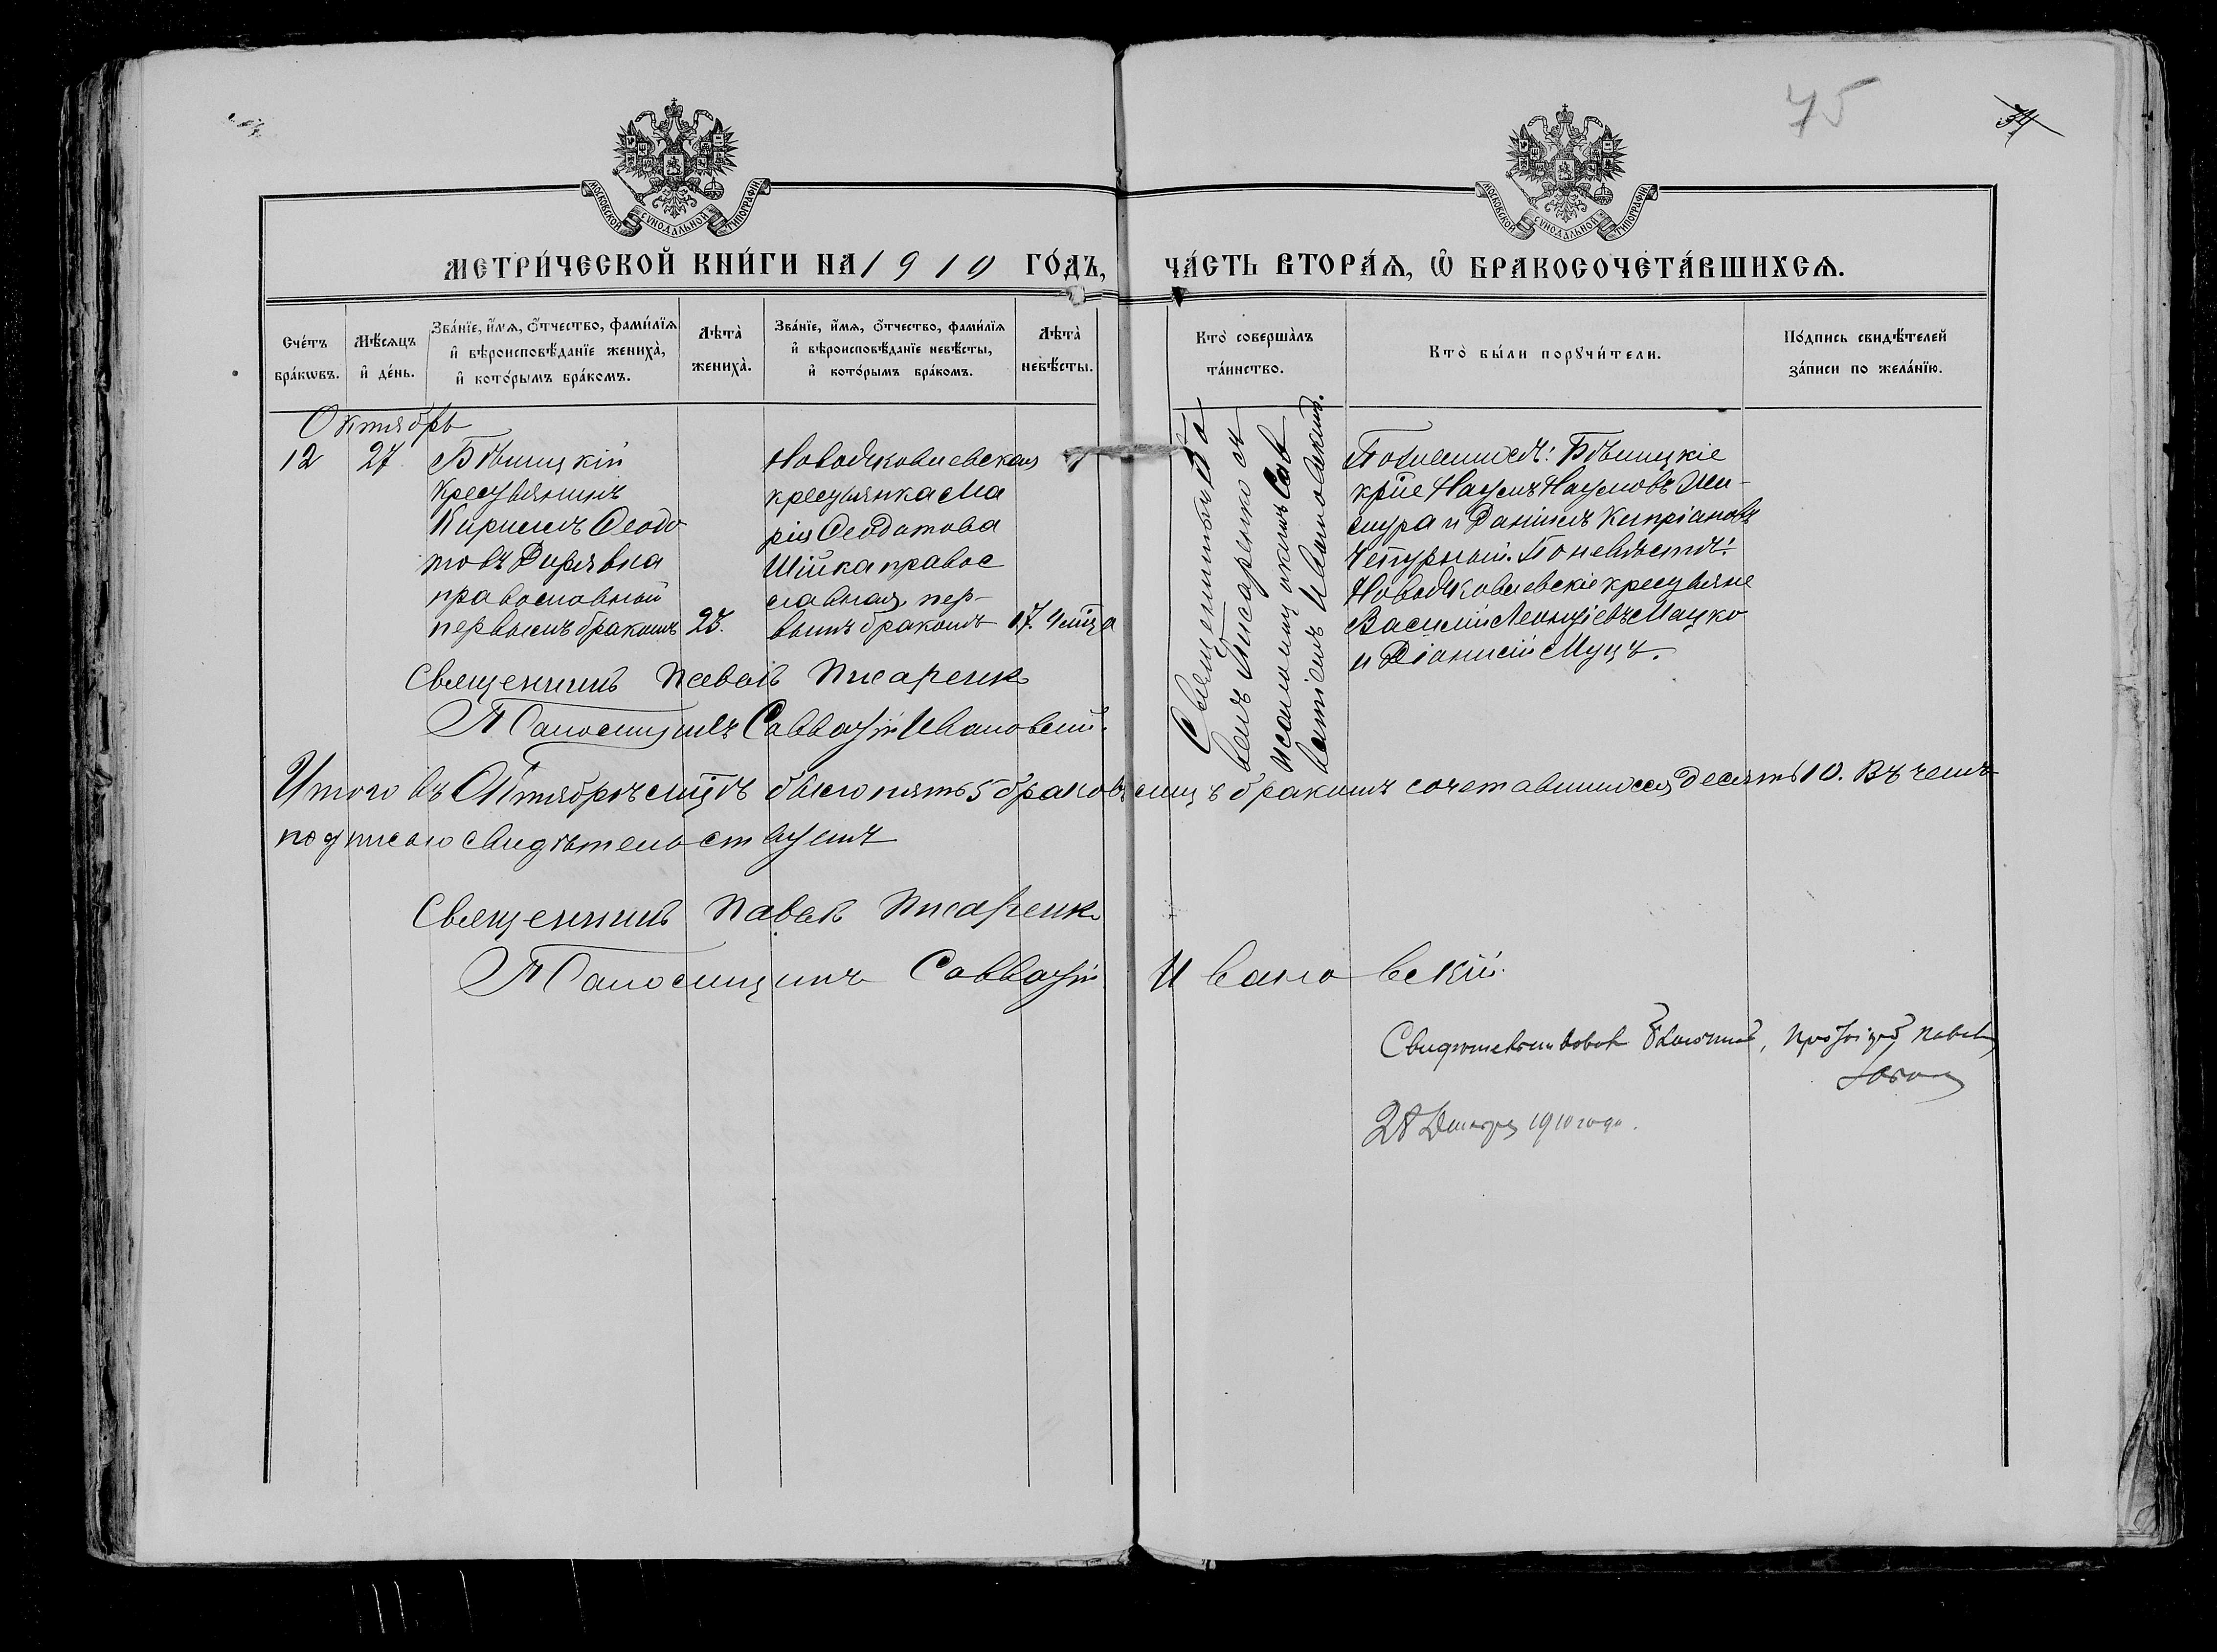 75
34
МОСКОВСКОЙ СУНОДАЛЬНОЙ ТИПОГРАФІИ.
МОСКОВСКОЙ СУНОДАЛЬНОЙ ТИПОГРАФІИ.
МЕТРИ́ЧЕСКОЙ КНИ́ГИ НА 1910 ГО́ДЪ,
ЧА́СТЬ ВТОРА́Ѧ, Ѽ БРАКОСОЧЕТА́ВШИХСѦ.
Сче́тъ бра́кѡвъ.
Мѣ́сѧцъ и҆ де́нь.
Зва́нїе, и҆́мѧ, ѻ҆́тчество, фами́лїѧ и҆ вѣроисповѣ́данїе жениха̀, и҆ кото́рымъ бра́комъ.
Лѣта̀ жениха̀.
Зва́нїе, и҆́мѧ, ѻ҆́тчество, фами́лїѧ и҆ вѣроисповѣ́данїе невѣ́сты, и҆ кото́рымъ бра́комъ.
Лѣта̀ невѣ́сты.
Кто̀ соверша̀лъ та́инство.
Кто̀ бы́ли порꙋчи́тели.
По́дпись свидѣ́телей за́писи по жела́нїю.
Октябрь
12
27
Бѣлицкій
Крестьянинъ
Кирилъ Ѳеодо
товъ Дирявка
православный
первымъ бракомъ
23.
Новояковлевская
крестьянка Ма
рія Ѳеодотова
Шійка правос
лавная, пер-
вымъ бракомъ
17.
Священникъ Па
велъ Писаренко съ
псаломщикомъ Сав
ватіемъ Ивановскимъ.
По женихѣ: Бѣлицкіе
кр͠не Наумъ Наумовъ
и Даніилъ Кипріановъ
Чепурный. По невѣстѣ:
Новояковлевскіе крестьяне
Василій Леонтіевъ Мацко
и Діонисій Муцъ.
Священникъ Павелъ Писаренко
Псаломщикъ Савватій Ивановскій.
Итого въ Октябрѣ мц͠ѣ было пять 5 браковъ, лицъ бракомъ сочетавшихся десять 10. Въ чемъ
подписью свидѣтельствуемъ
Священникъ Павелъ Писаренко
Псаломщикъ Савватій Ивановскій.
Свидѣтельствовалъ Благочинный, Протоіерей Павелъ
28 Декабря 1910 года.